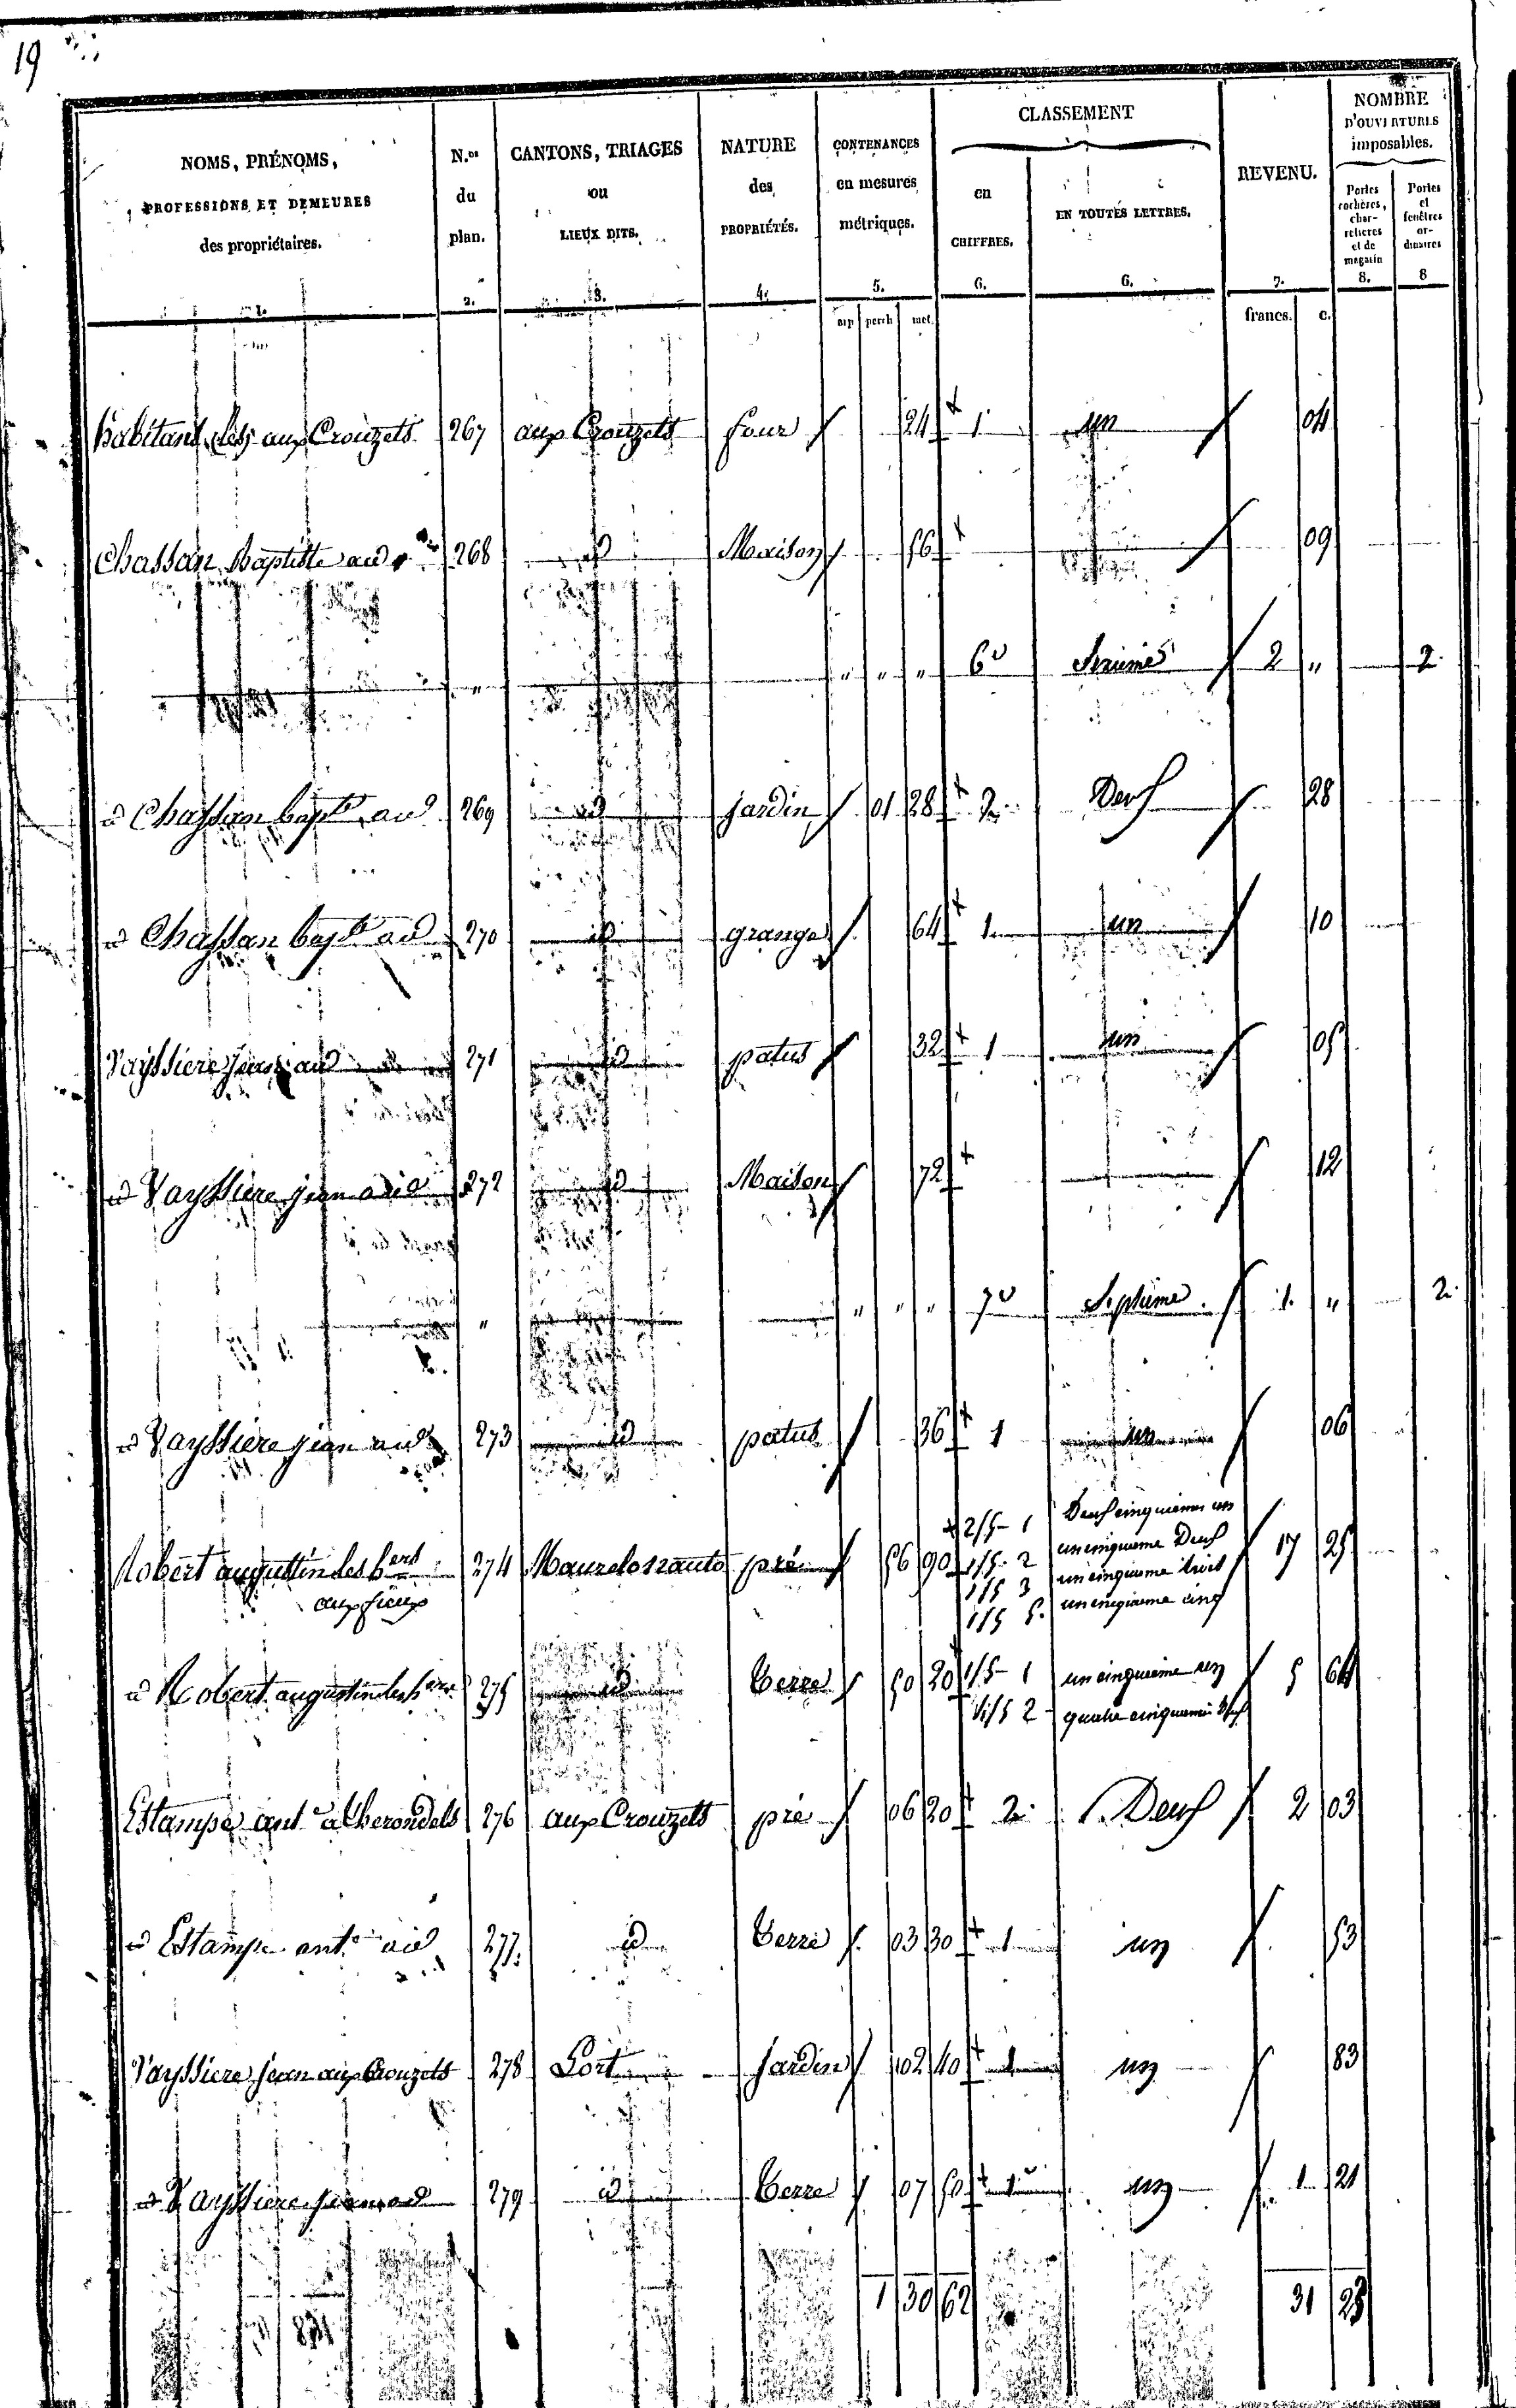 19
NOMS, PRÉNOMS,
PROFESSIONS ET DEMEURES
des propriétaires.
1.
N.os
du
plan.
2.
CANTONS, TRIAGES
ou
LIEUX DITS.
3.
NATURE
des
PROPRIÉTÉS.
4.
CONTENANCES
en mesures
métriques.
5.
arp perch met.
CLASSEMENT
en
CHIFFRES.
6.
EN TOUTES LETTRES.
6.
REVENU.
7.
francs. c.
NOMBRE
D'OUVERTURES
imposables.
Portes
cochères,
char-
retières
et de
magasin
8.
Portes
et
fenêtres
or-
dinaires
8
habitants les aux Crouzets 267 aux Crouzets four 24 1 un 04
Chassan Baptiste aud 268 id Maison 56 09
" " " " 6e Sixième 2 " 2
id Chassan bapte aud 269 id jardin 01 28 2 Deux 28
id Chassan bapte aud 270 id grange 64 1 un 10
Vayssiere jean aud 271 id patus 32 1 un 05
id Vayssiere jean aud 272 id Maison 72 12
" " " " 7e Septième 1 " 2
id Vayssiere jean aud 273 id patus 36 1 un 06
Robert augustin les hers 274 pré 56 90 2/5 1 Deux cinquièmes un 17 25
aux fieux 1/5 2 un cinquième Deux
1/5 3 un cinquième trois
1/5 5 un cinquième cinq
id Robert augustin les hers 275 id Terre 50 20 1/5 1 un cinquième un 5 64
4/5 2 quatre cinquièmes Deux
Estampe ante a 276 aux Crouzets pré 06 20 2 Deux 2 03
id Estampe ante aud 277 id Terre 03 30 1 un 53
Vayssiere jean aux Crouzets 278 Lort jardin 02 40 1 un 83
id Vayssiere jean aud 279 id Terre 07 50 1 un 1 21
1 30 62 31 23